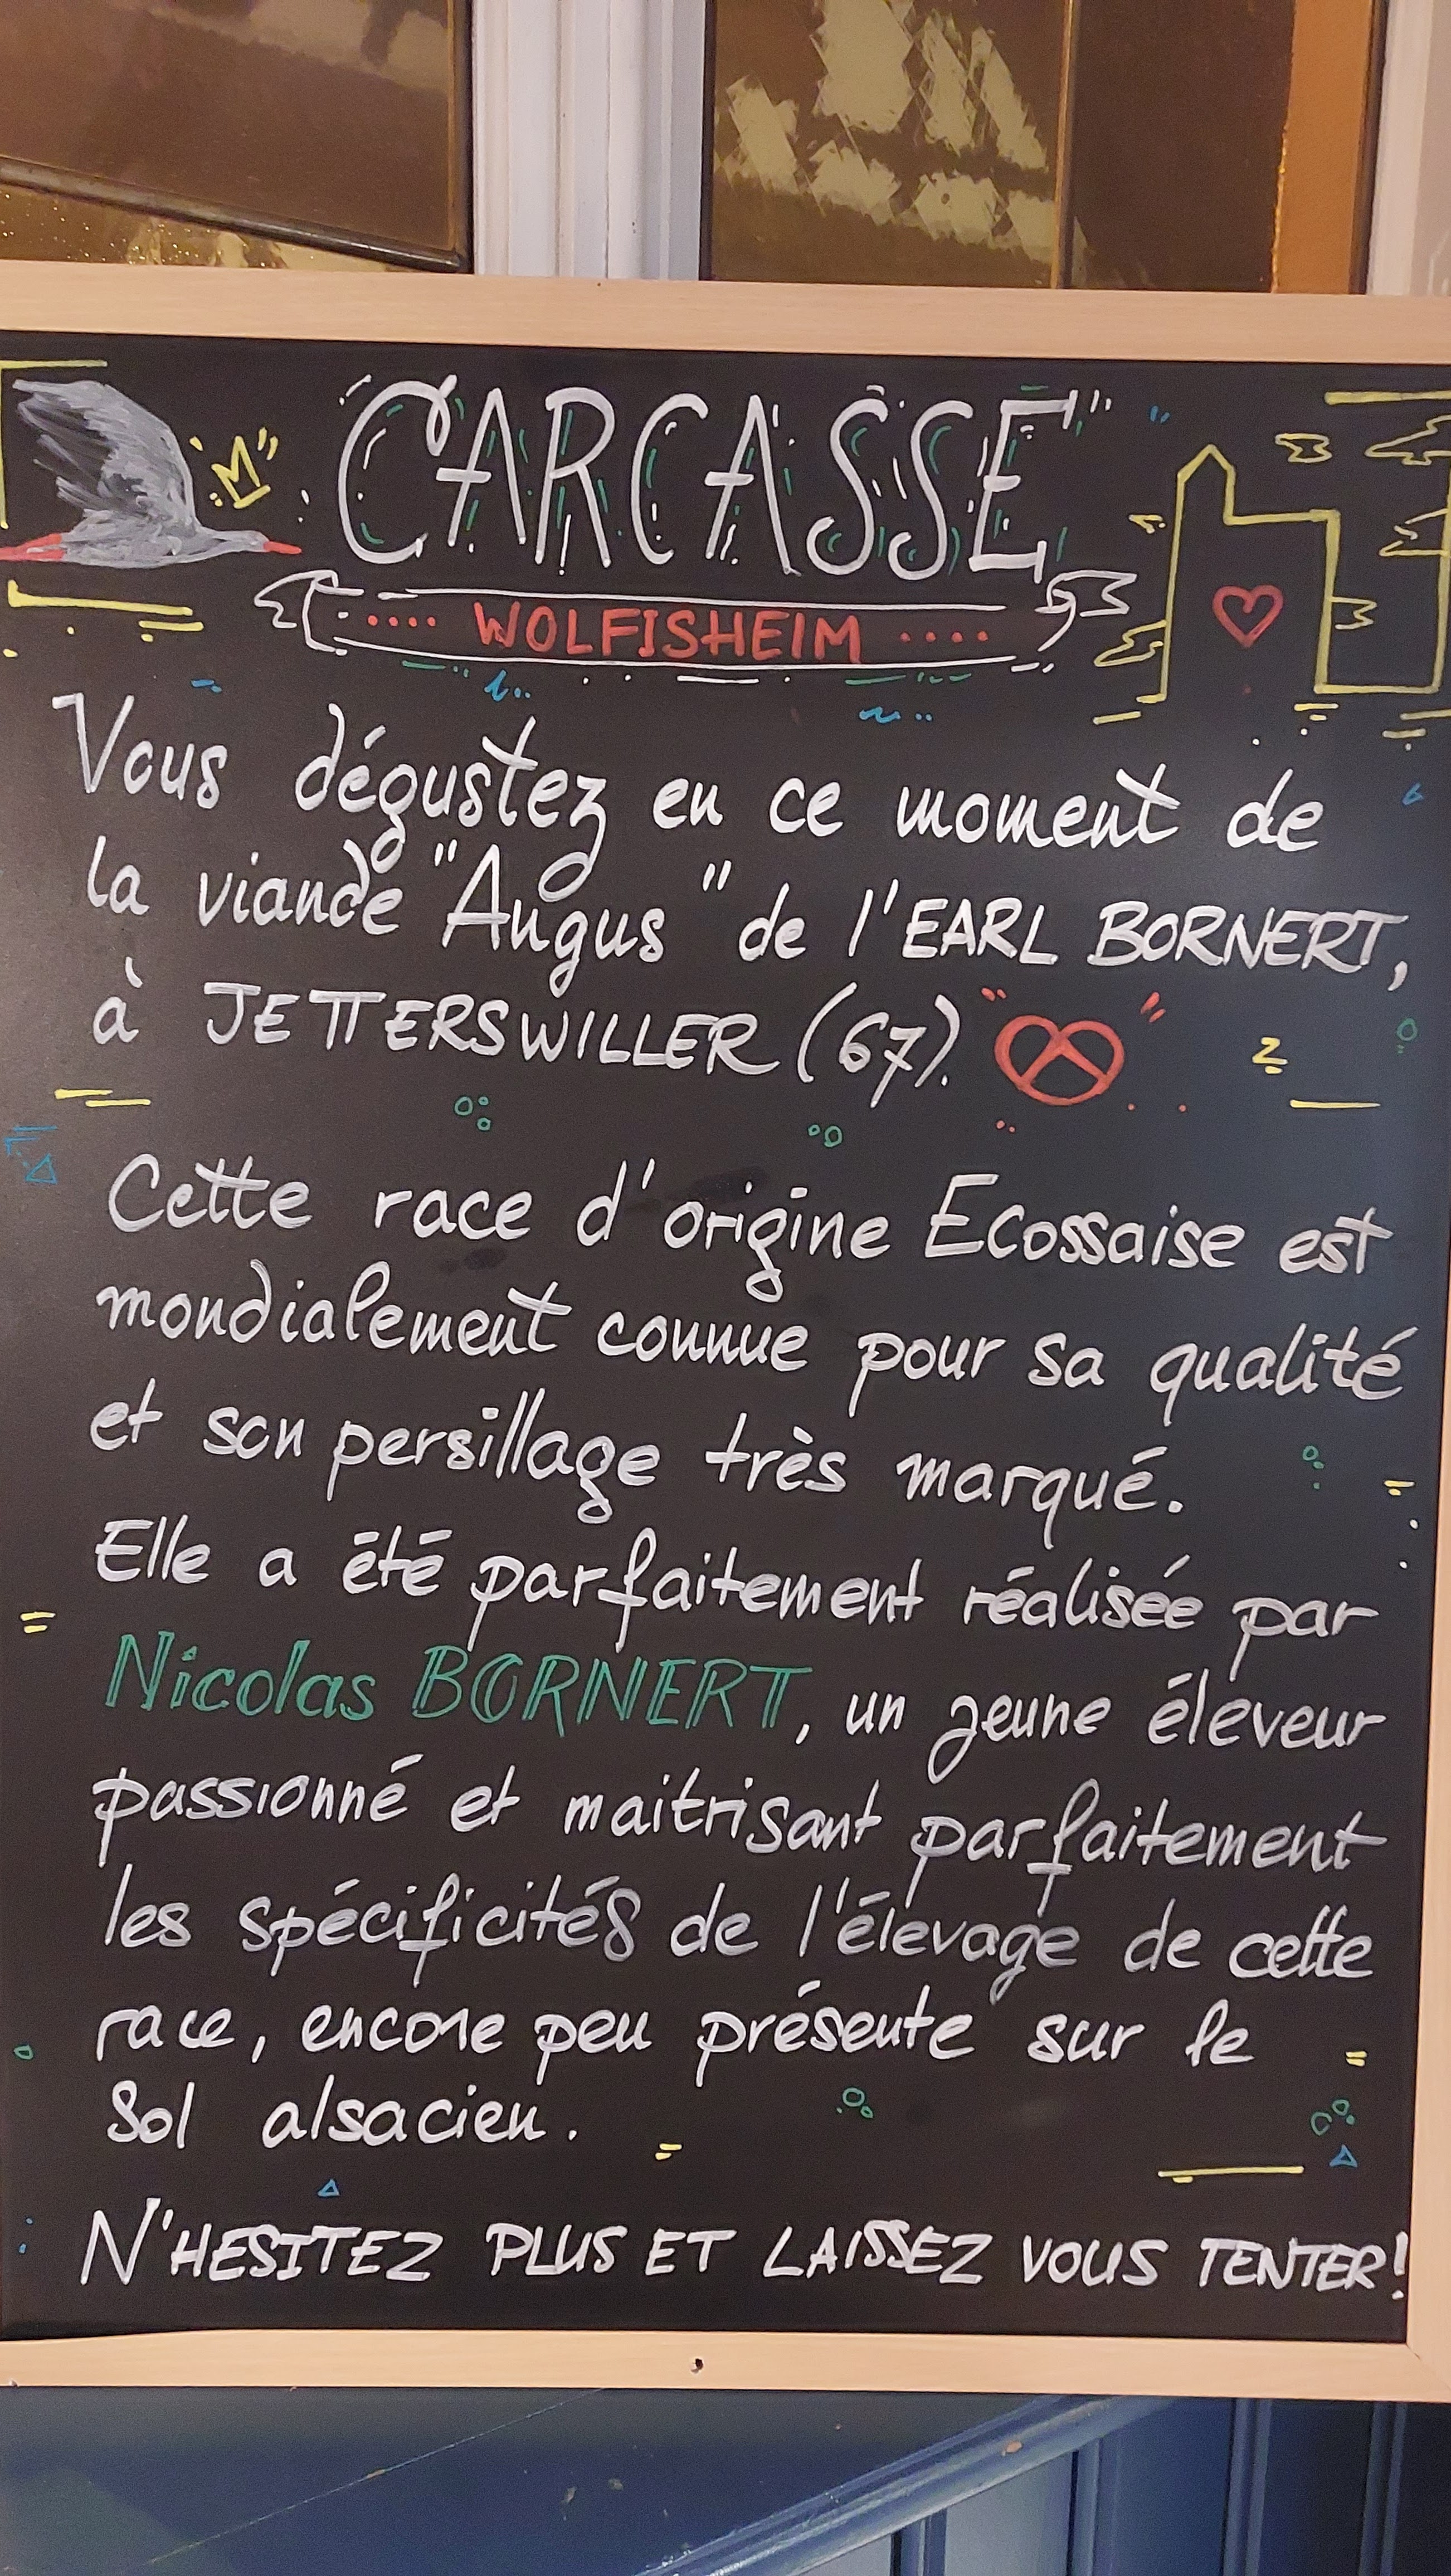 CARCASSE
WOLFISHEIM
Vous dégustez en ce moment de
la viande "Angus" de l'EARL BORNERT,
à JETTERSWILLER (67).
Cette race d'origine Ecossaise est
mondialement connue pour sa qualité
et son persillage très marqué.
Elle a été parfaitement réalisée par
Nicolas BORNERT, un jeune éleveur
passionné et maitrisant parfaitement
les spécificités de l'élevage de cette
race, encore peu présente sur le
Sol alsacien.
N'HESITEZ PLUS ET LAISSEZ VOUS TENTER!